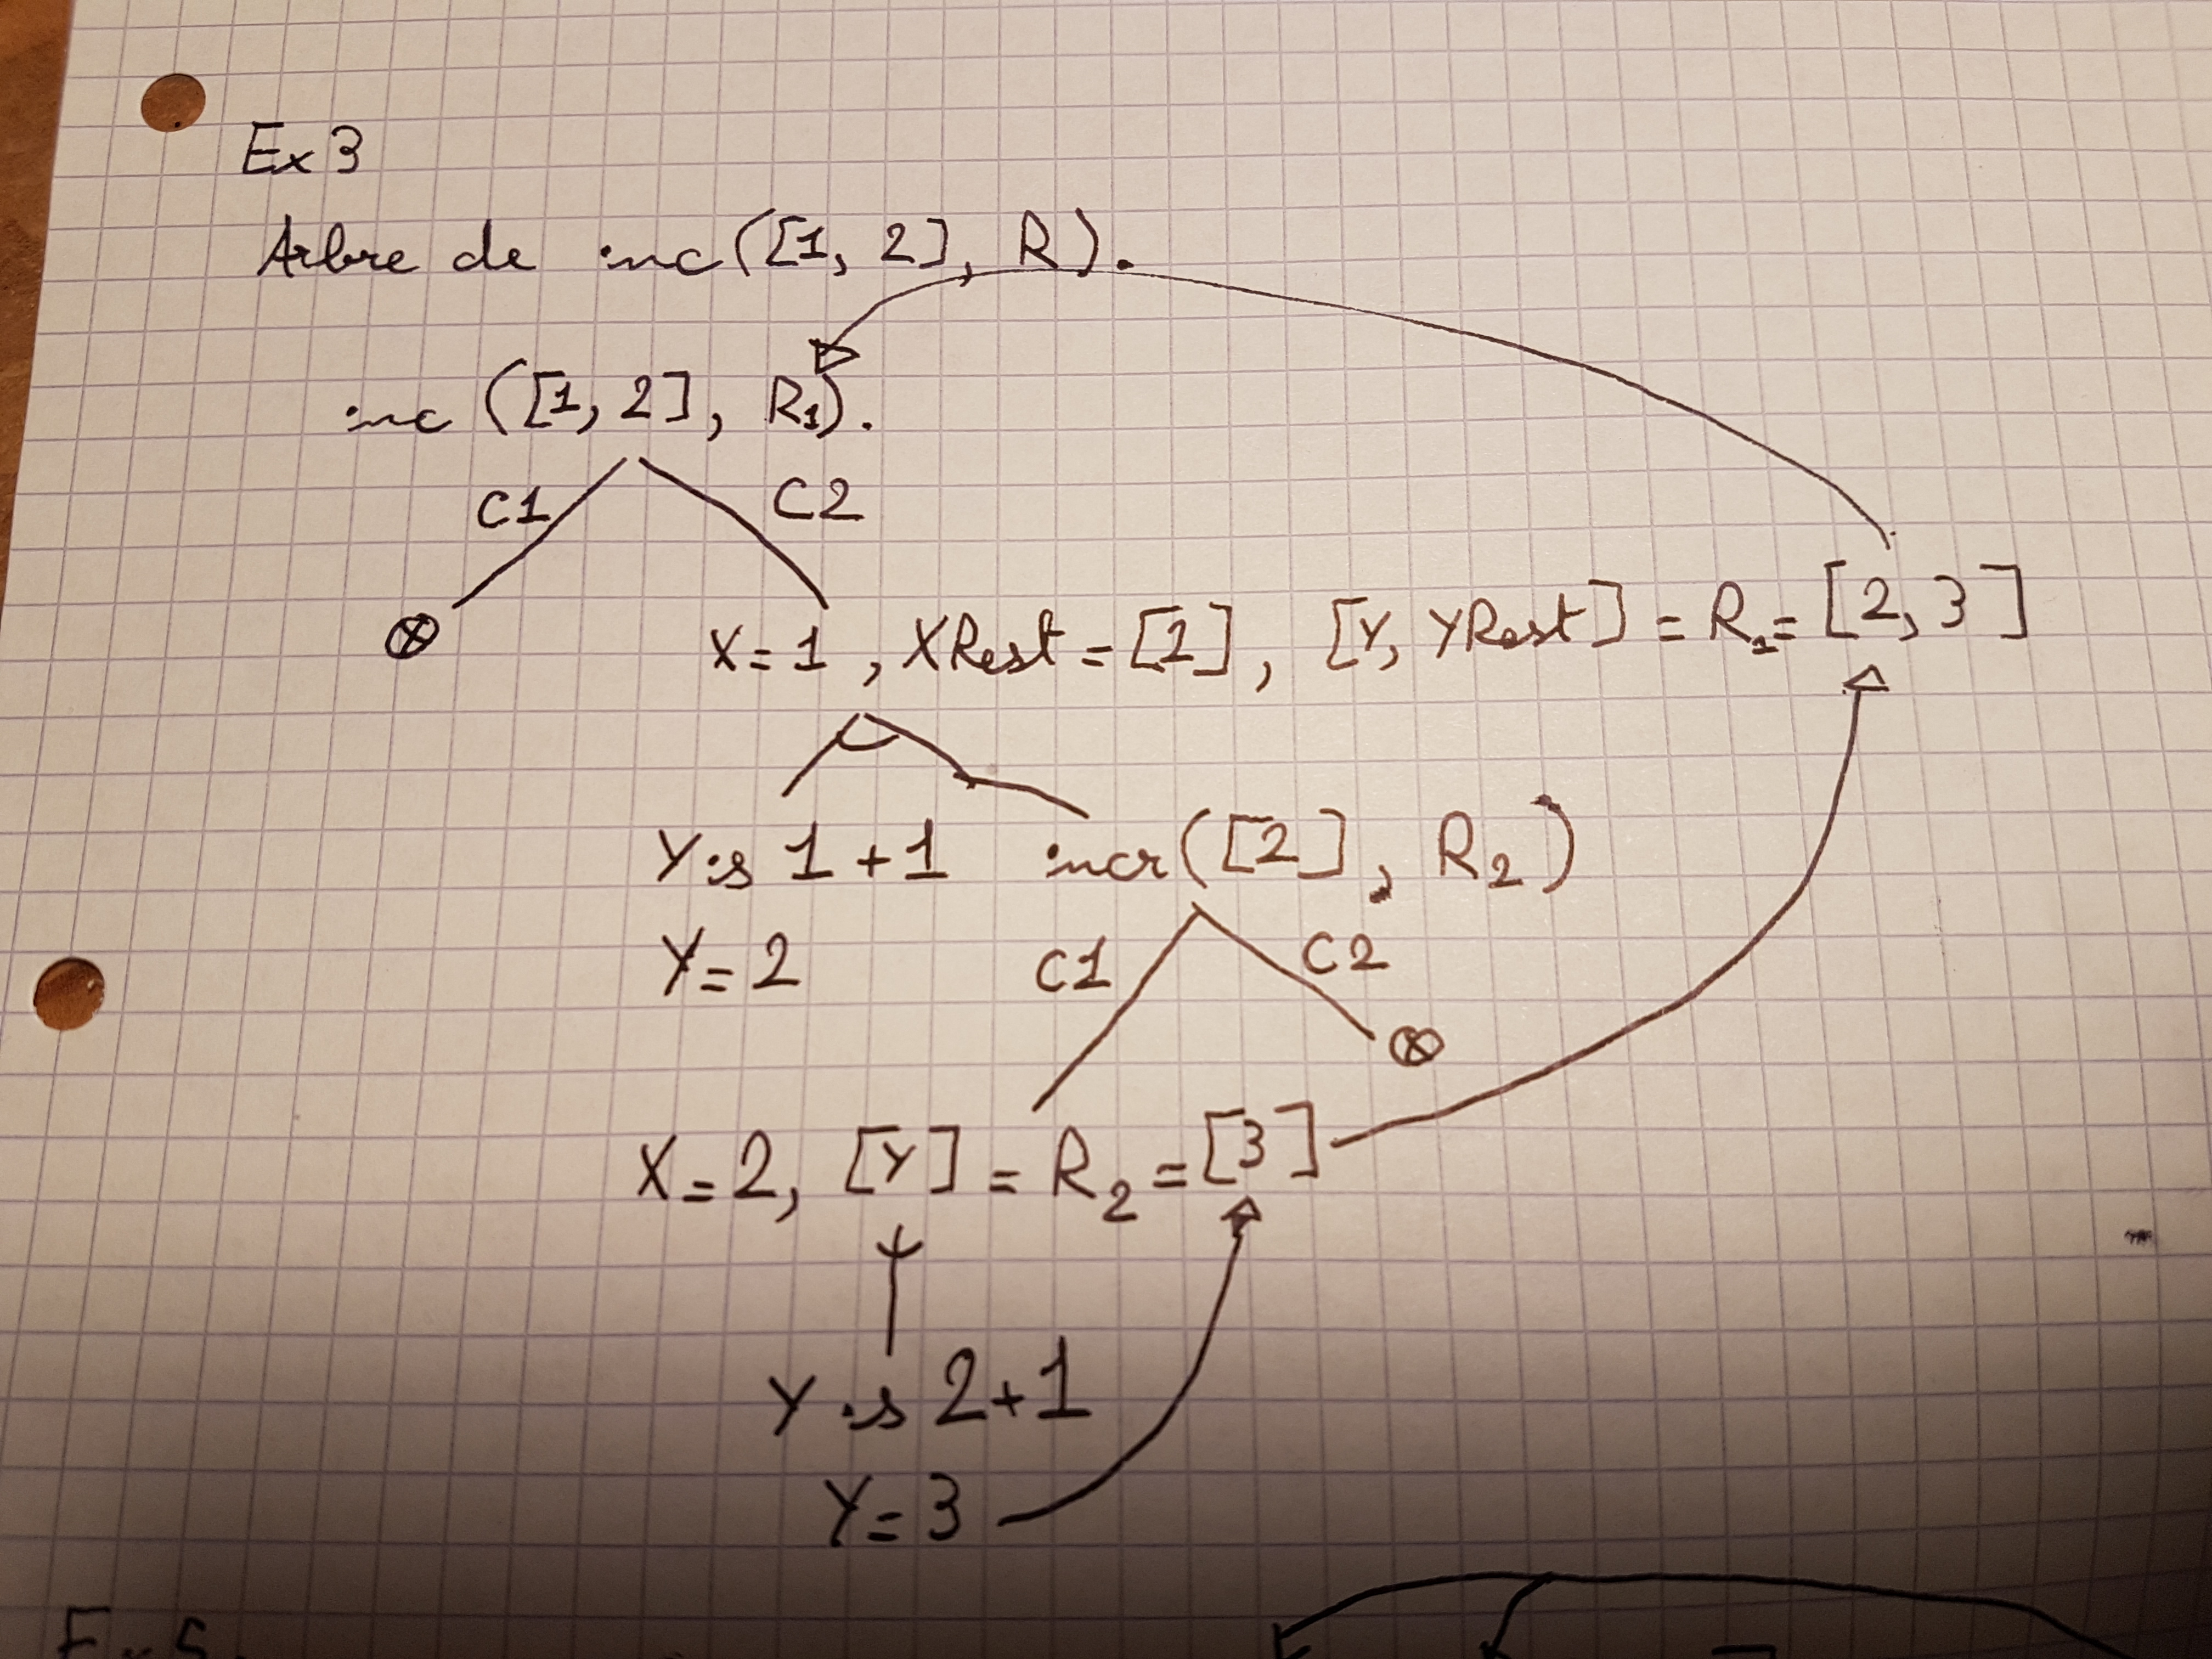 Ex 3
Arbre de inc([1, 2], R).
inc ([1, 2], R1).
C1 C2
⊗ X=1, XRest=[2], [Y, YRest] = R1= [2,3]
Y is 1+1 incr([2], R2)
Y=2 C1 C2
⊗
X=2, [Y] = R2 = [3]
Y is 2+1
Y=3